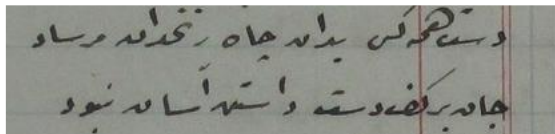 دست همه کس بدان چاه زنخدان مرساد
جان بر کف دست داشتن آسان نبود